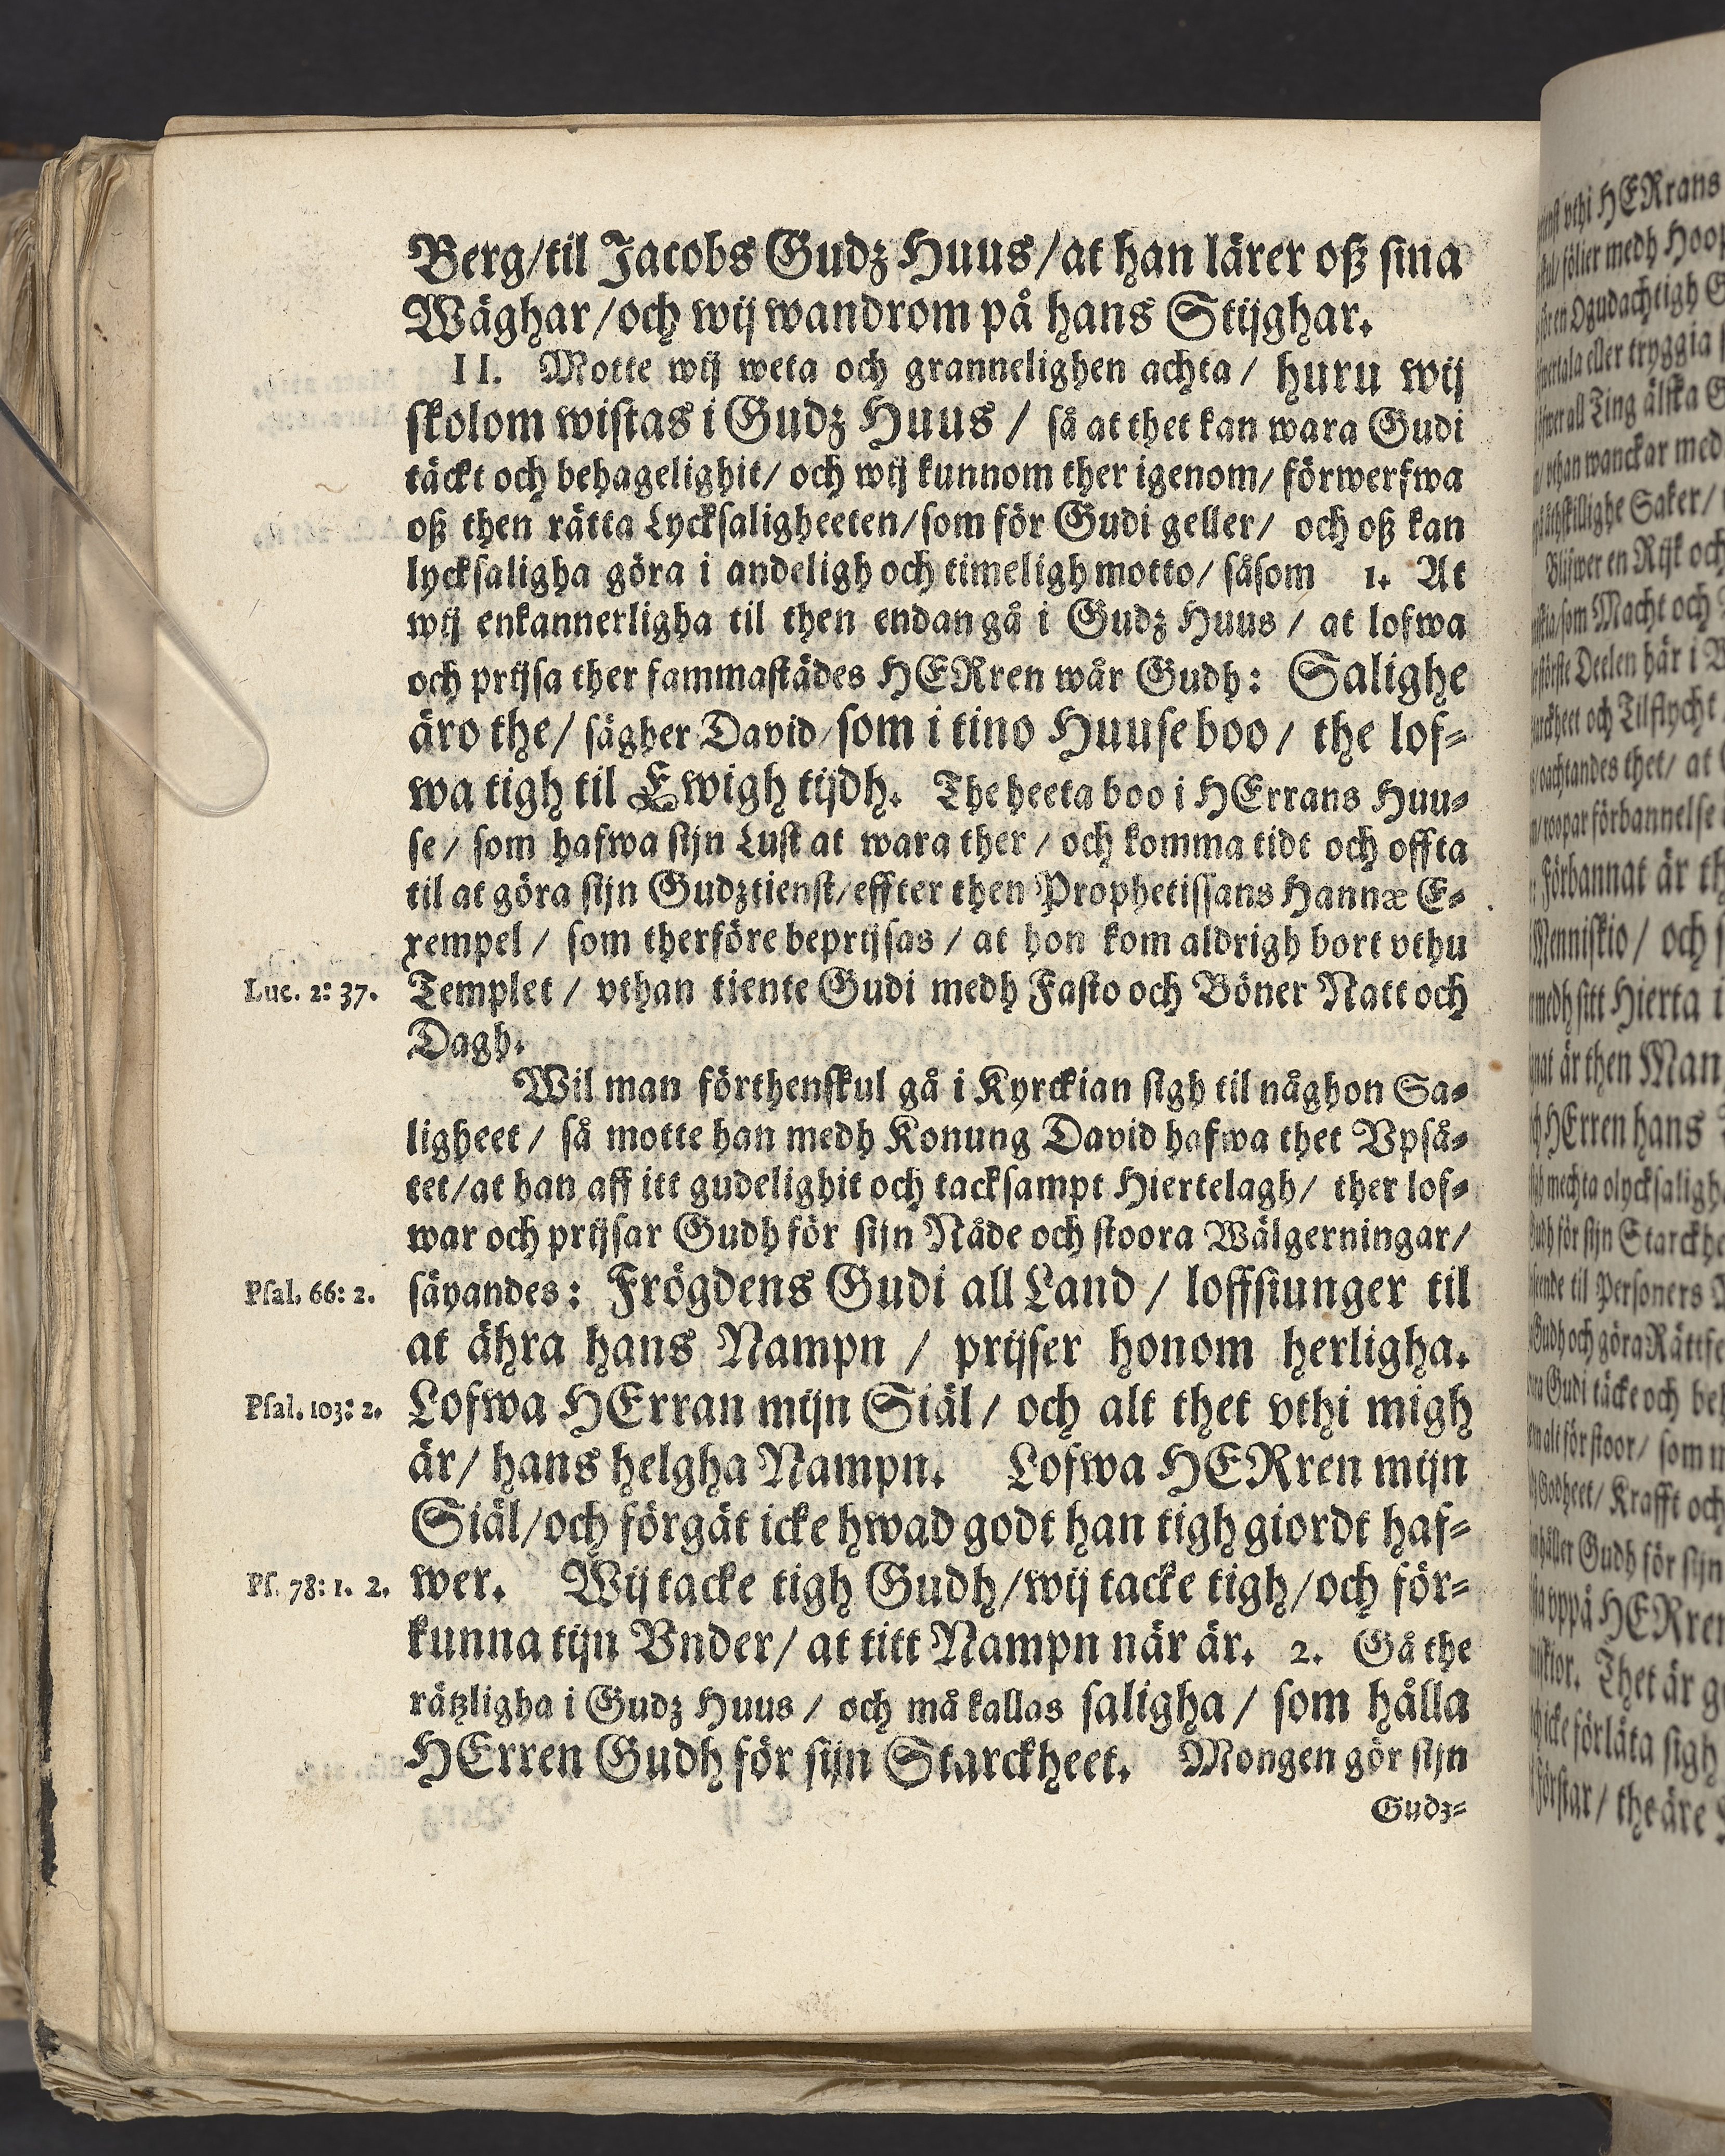 Berg/til Jacobs Gudz Huus/at han lärer oß sina
Wäghar/och wij wandrom på hans Stijghar.
II. Motte wij weta och grannelighen achta/ huru wij
skolom wistas i Gudz Huus / så at thet kan wara Gudi
täckt och behagelighit/ och wij kunnom ther igenom/ förwerfwa
oß then rätta Lycksaligheeten/som för Gudi geller/ och oß kan
lycksaligha göra i andeligh och timeligh motto/ såsom 1. At
wij enkannerligha til then endan gå i Gudz Huus / at lofwa
och prijsa ther sammastädes HERren wår Gudh: Salighe
äro the/ sägher David/som i tino Huuse boo/ the lof-
wa tigh til Ewigh tijdh. The heeta boo i HErrans Huu-
se/ som hafwa sijn Lust at wara ther / och komma tidt och offta
til at göra sijn Gudztienst/effter then Prophetissans Hannæ E-
xempel / som therföre beprijsas / at hon kom aldrigh bort vthu
Luc. 2: 37. Templet / vthan tiente Gudi medh Fasto och Böner Natt och
Dagh.
Wil man förthenskul gå i Kyrckian sigh til någhon Sa-
ligheet / så motte han medh Konung David hafwa thet Vpså-
tet/at han aff itt gudelighit och tacksampt Hiertelagh/ ther lof-
war och prijsar Gudh för sijn Nåde och stoora Wälgerningar/
Psal. 66: 2. säyandes: Frögdens Gudi all Land / loffsiunger til
at ähra hans Nampn / prijser honom herligha.
Psal. 103: 2. Lofwa HErran mijn Siäl/ och alt thet vthi migh
är/ hans helgha Nampn. Lofwa HERren mijn
Siäl/och förgät icke hwad godt han tigh giordt haf-
Ps. 78: 1. 2. wer. Wij tacke tigh Gudh/wij tacke tigh/och för-
kunna tijn Vnder/ at titt Nampn när är. 2. Gå the
rätzligha i Gudz Huus / och må kallas saligha / som hålla
HErren Gudh för sijn Starckheet. Mongen gör sijn
Gudz-